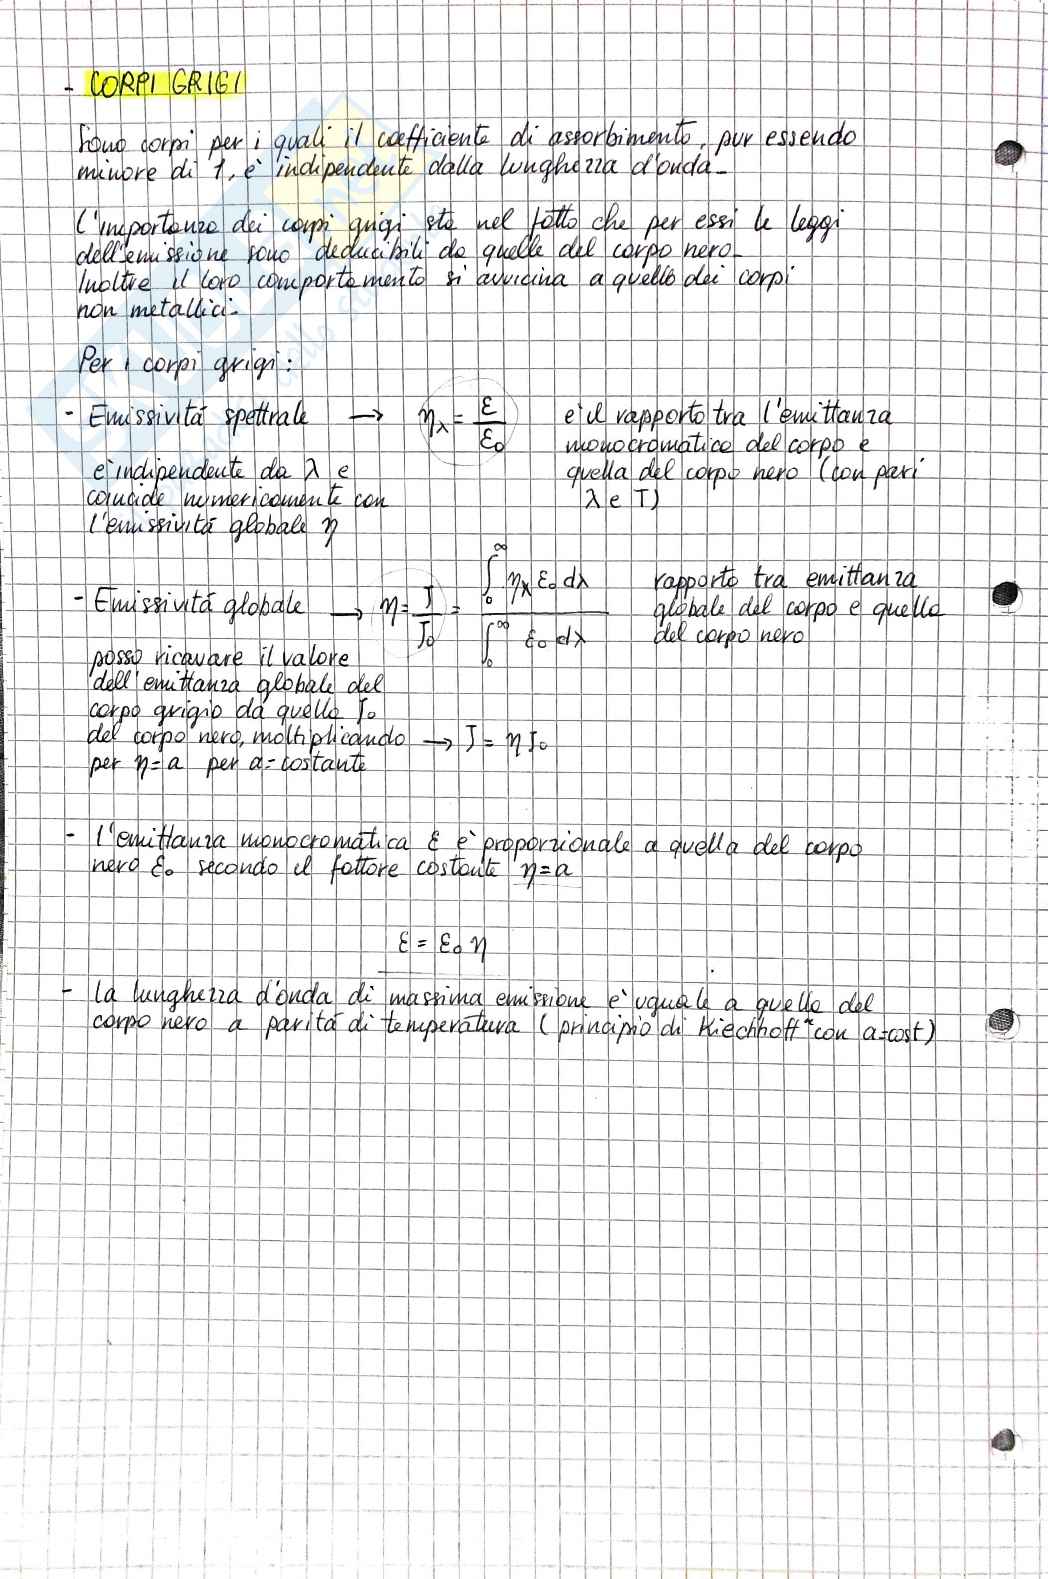 - CORPI GRIGI
Sono corpi per i quali il coefficiente di assorbimento, pur essendo
minore di 1, è indipendente dalla lunghezza d'onda.
L'importanza dei corpi grigi sta nel fatto che per essi le leggi
dell'emissione sono deducibili da quelle del corpo nero.
Inoltre il loro comportamento si avvicina a quello dei corpi
non metallici.
Per i corpi grigi:
- Emissività spettrale → η_λ = ε/ε₀ è il rapporto tra l'emittanza
monocromatica del corpo e
quella del corpo nero (con pari
λ e T)
è indipendente da λ e
coincide numericamente con
l'emissività globale η
- Emissività globale → η = J/J₀ = ∫₀^∞ η_λ ε₀ dλ / ∫₀^∞ ε₀ dλ
rapporto tra emittanza
globale del corpo e quella
del corpo nero
posso ricavare il valore
dell'emittanza globale del
corpo grigio da quella J₀
del corpo nero, moltiplicando → J = η J₀
per η=a per a=costante
- l'emittanza monocromatica ε è proporzionale a quella del corpo
nero ε₀ secondo il fattore costante η=a
ε = ε₀ η
- la lunghezza d'onda di massima emissione è uguale a quella del
corpo nero a parità di temperatura (principio di Kiechhoff" con a=cost)